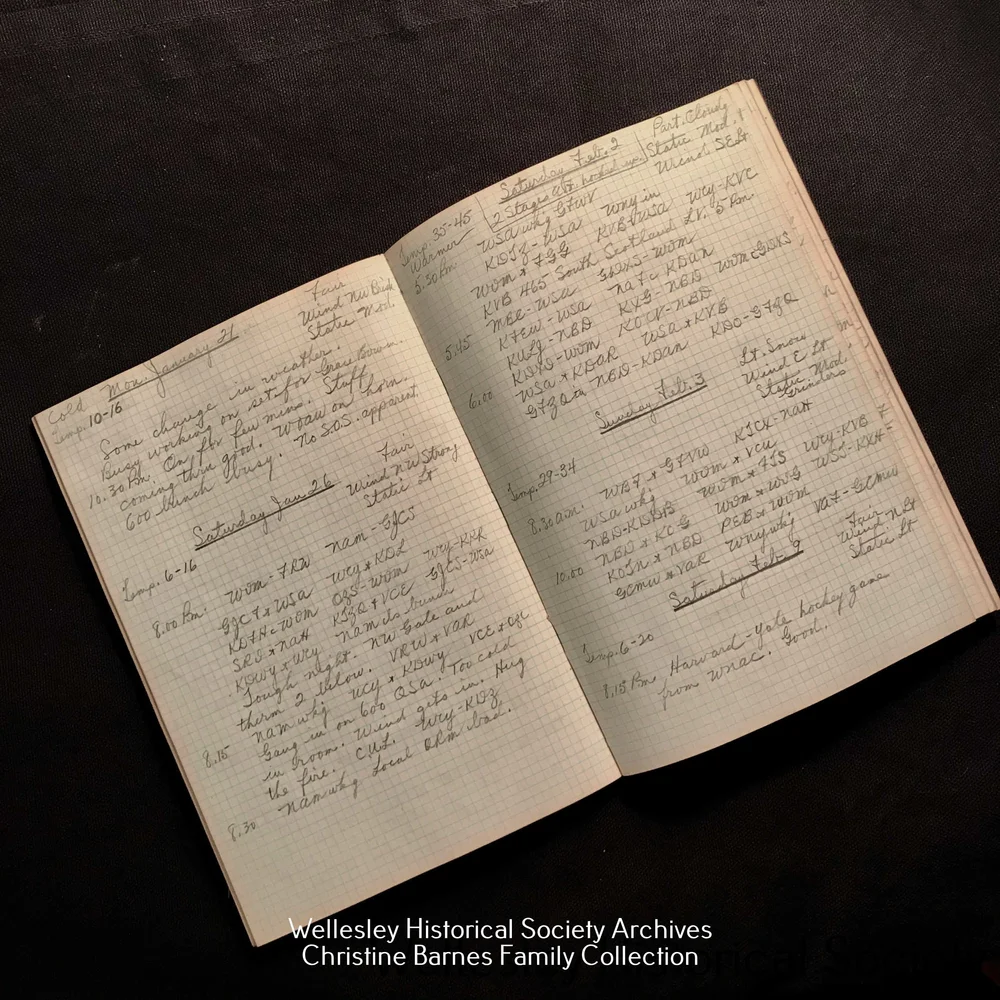 Mon. January 21
Fair
Cold
Wind NW Brisk
Temp. 10-16
Static Mod.
Some change in weather.
Busy working on set for Grace Brown.
10.30 Pm. On for few mins. Stuff
coming thru good. WOAW on horn.
600 bunch busy. No S.O.S. apparent.
Saturday Jan. 26
Fair
Wind NW Strong
Static Lt
Temp. 6-16
8.00 Pm. WOM - NAM - GJCS
GJCT x WSA WCY x KDL WCY - KRK
KDTH - WOM OQS - WOM GJCS - WSA
SRI x NAH KJZQ x VCE
KDWY x WCY NAM ds bunch
Tough night. NW Gale and
therm 2 below. VRW x VAR
8.15 NAM wkg WCY x KDWY VCE x
Gang in on 600 QSA. Too cold
in room. Wind gets in. Hug
the fire. CUL. WCY - KDZ
8.30 NAM wkg Local QRM bad.
Saturday Feb. 2
Part. Cloudy
Static Mod. +
Wind SE Lt
Temp. 35-45
Warmer
2 Stages hooked up.
5.30 Pm. WSA wkg GFWV
KDJZ - WSA WNY in WCY - KVC
WOM x FGG KVB x WSA
KVB 465 South Scotland Lt. 5 Pm.
MBC - WSA GDXS - WOM
5.45 KFEW - WSA NAT c KDAN
KULJ - NBD KXG - NBD WOM c GDXS
KDXO - WOM KOCV - NBD
6.00 WSA x KDAR WSA x KVB
GFZQ a NBD - KDAN KDO - GFZQ
Sunday Feb. 3
Lt. Snow
Wind E Lt
Static Mod.
Grinders
Temp. 29-34
8.30 am. WBF x GFVW KJCX - NAH
WSA wkg WOM x VCU
NBD - KDBB WOM x FJS WCY - KVB
10.00 NBD x KCG WOM x WVG WSC - KXH
KOJN x NBD PEB x WOM
GCMW x VAR WNY wkg VAF - GCMW
Saturday Feb. 9
Fair
Wind N Lt
Static Lt
Temp. 6-20
8.15 Pm. Harvard-Yale hockey game
from WNAC. Good.
Wellesley Historical Society Archives
Christine Barnes Family Collection